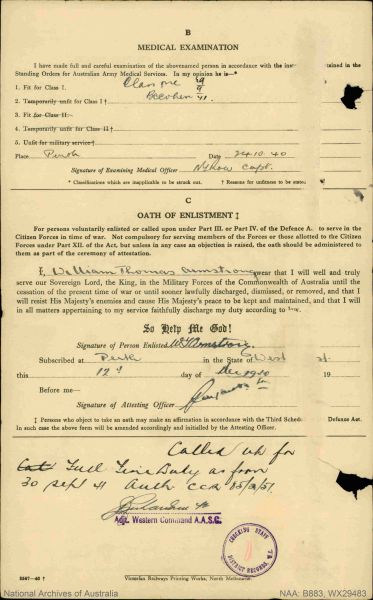 B
MEDICAL EXAMINATION
I have made full and careful examination of the abovenamed person in accordance with the ins tained in the
Standing Orders for Australian Army Medical Services. In my opinion he is—*
1. Fit for Class I. Class one
2. Temporarily unfit for Class I†
3. Fit for Class II
4. Temporarily unfit for Class II†
5. Unfit for military service†
Place Perth Date 24.10.40
Signature of Examining Medical Officer Capt.
* Classifications which are inapplicable to be struck out. † Reasons for unfitness to be stated
C
OATH OF ENLISTMENT ‡
For persons voluntarily enlisted or called upon under Part III. or Part IV. of the Defence A to serve in the
Citizen Forces in time of war. Not compulsory for serving members of the Forces or those allotted to the Citizen
Forces under Part XII. of the Act, but unless in any case an objection is raised, the oath should be administered
to them as part of the ceremony of attestation.
I, William Thomas Armstrong swear that I will well and truly
serve our Sovereign Lord, the King, in the Military Forces of the Commonwealth of Australia until the
cessation of the present time of war or until sooner lawfully discharged, dismissed, or removed, and that I
will resist His Majesty's enemies and cause His Majesty's peace to be kept and maintained, and that I will
in all matters appertaining to my service faithfully discharge my duty according to law.
So Help Me God!
Signature of Person Enlisted W T Armstrong
Subscribed at Perth in the State of West
this 12th day of Dec 1940 19
Before me—
Signature of Attesting Officer
‡ Persons who object to take an oath may make an affirmation in accordance with the Third Sched Defence Act.
In such case the above form will be amended accordingly and initialled by the Attesting Officer.
Called up for
Full Time Duty as from
30 Sept 41 Auth CCR
Adjt. Western Command A.A.S.C.
DISTRICT RECORDS
3567—40 † Victorian Railways Printing Works, North Melbourne.
National Archives of Australia NAA: B883, WX29483